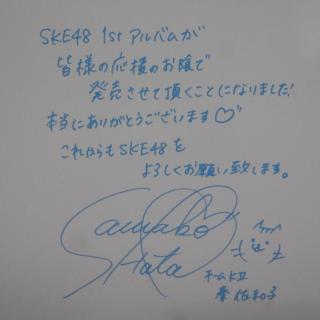 SKE48 1stアルバムが
皆様の応援のお陰で
発売させて頂くことになりました!
本当にありがとうございます♡
これからもSKE48を
よろしくお願い致します。
Sawako
Hata
チームKⅡ
秦佐和子